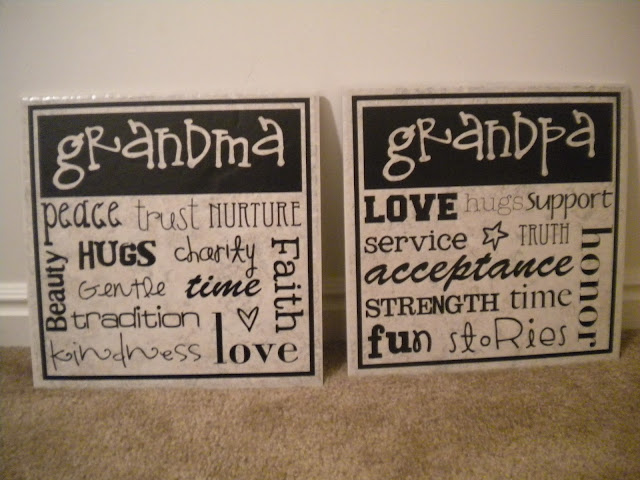 grandma
peace trust NURTURE
HUGS charity
Gentle time
tradition
kindness love
Beauty
Faith
grandpa
LOVE hugs Support
service TRUTH
acceptance
STRENGTH time
fun stoRies
honor